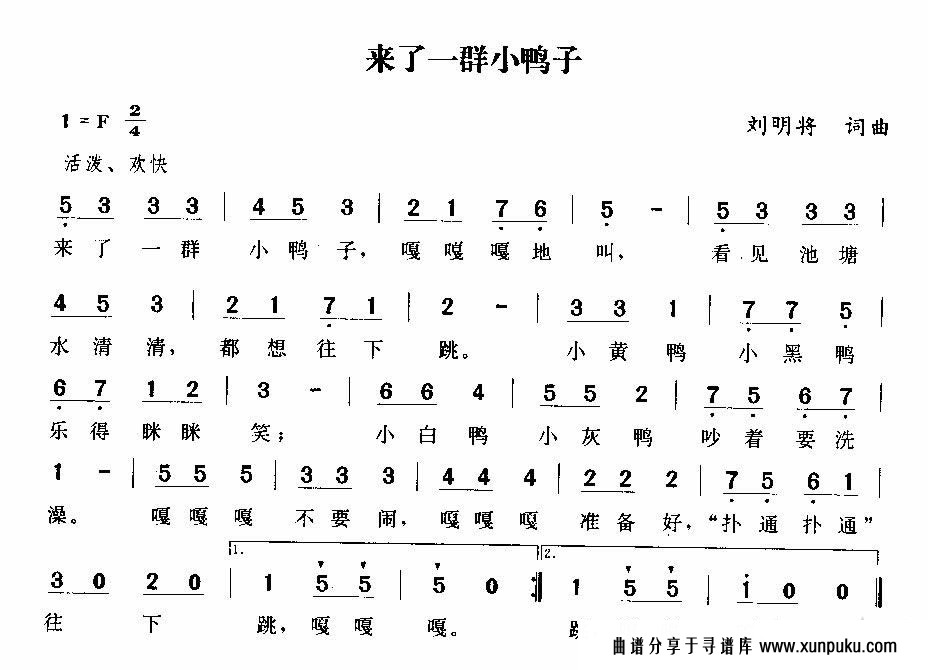 来了一群小鸭子
1 = F 2/4
刘明将 词曲
活泼、欢快
5 3 3 3 | 4 5 3 | 2 1 7 6 | 5 - | 5 3 3 3 |
来了一群 小鸭子, 嘎嘎嘎地 叫, 看见池塘
4 5 3 | 2 1 7 1 | 2 - | 3 3 1 | 7 7 5 |
水清清, 都想往下 跳。 小黄鸭 小黑鸭
6 7 1 2 | 3 - | 6 6 4 | 5 5 2 | 7 5 6 7 |
乐得眯眯 笑; 小白鸭 小灰鸭 吵着要洗
1 - | 5 5 5 | 3 3 3 | 4 4 4 | 2 2 2 | 7 5 6 1 |
澡。 嘎嘎嘎 不要闹, 嘎嘎嘎 准备好, “扑通扑通”
1. 2.
3 0 2 0 | 1 5 5 | 5 0 :| 1 5 5 | 1 0 0 |
往 下 跳, 嘎嘎 嘎。
曲谱分享于寻谱库 www.xunpuku.com